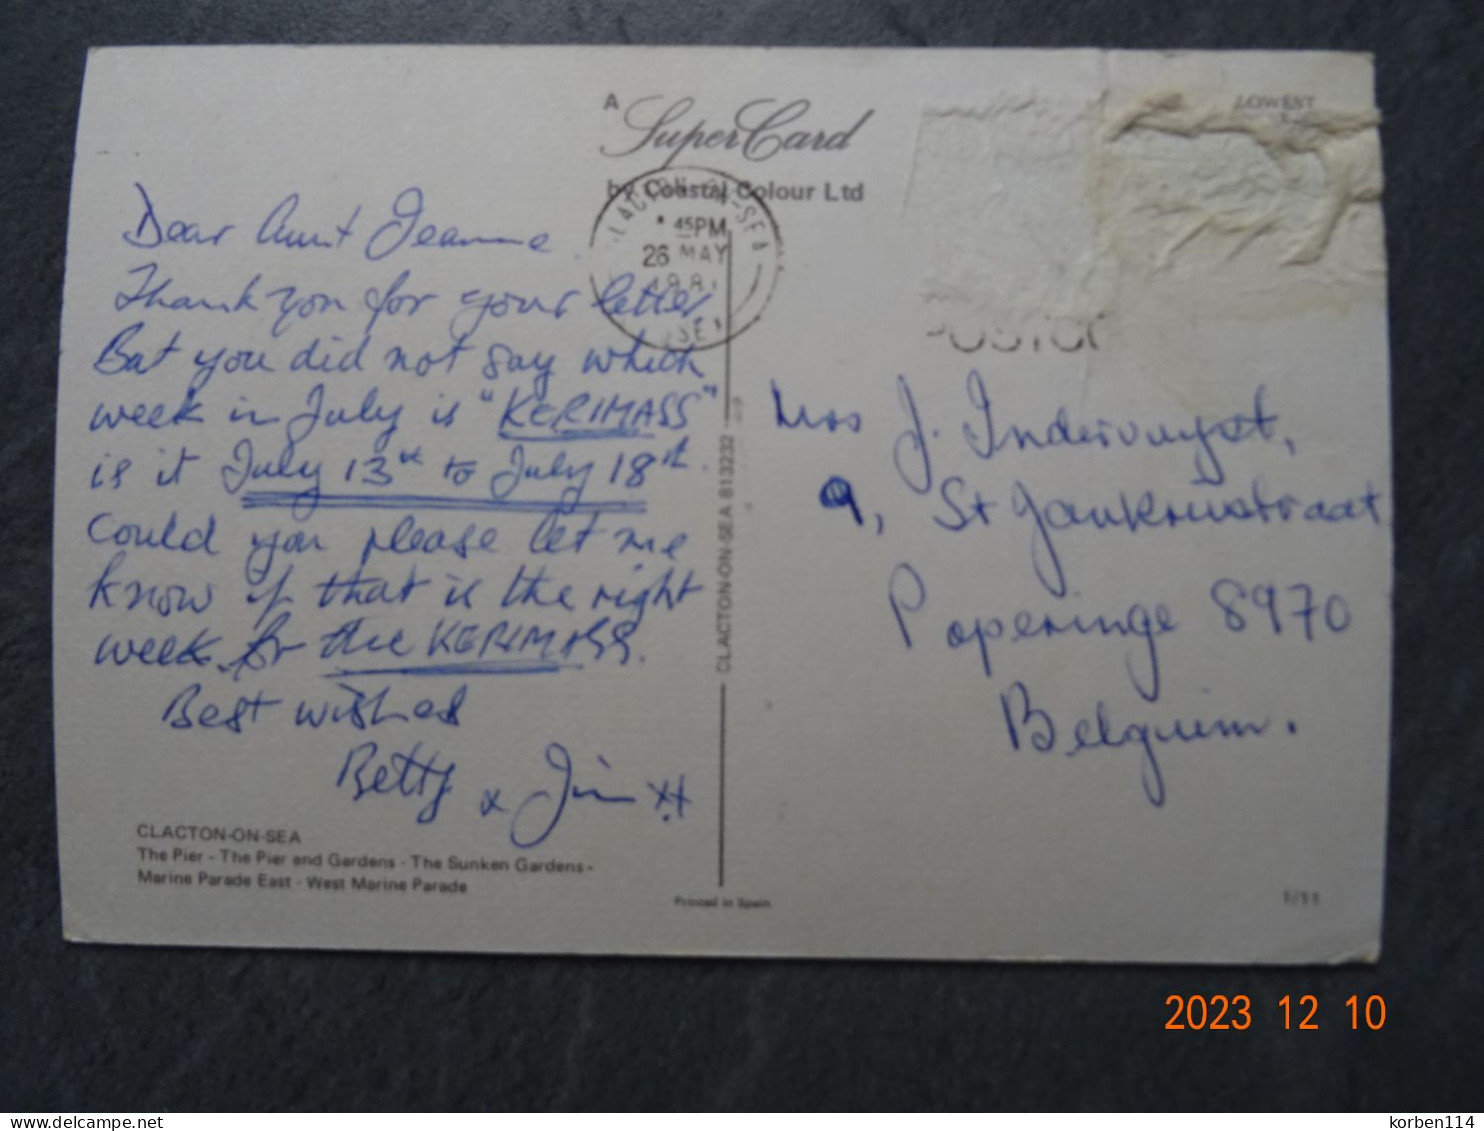 A
Super Card
by Coastal Colour Ltd
CLACTON-ON-SEA
45PM
26 MAY
198
SEX
LOWEST
POSTCO
Dear Aunt Jeanne
Thank you for your letter
But you did not say which
week in July is "KERIMASS"
is it July 13th to July 18th.
Could you please let me
know if that is the right
week for the KERIMASS.
Best wishes
Betty & Jim
CLACTON-ON-SEA
The Pier - The Pier and Gardens - The Sunken Gardens -
Marine Parade East - West Marine Parade
CLACTON-ON-SEA 813232
Printed in Spain
Mrs J. Indervuyst,
9, St
Poperinge 8970
Belguim.
2023 12 10
korben114